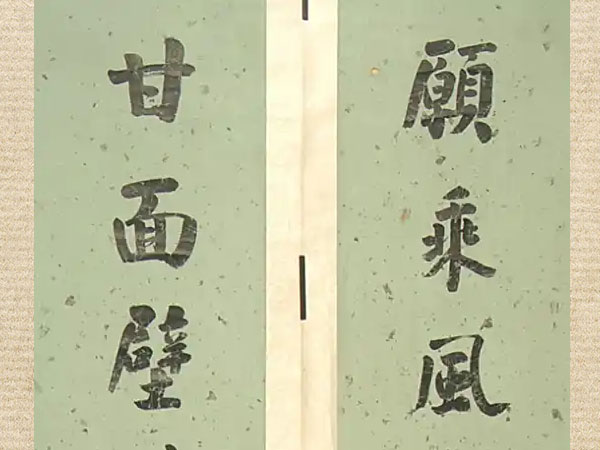 願乘風
甘面壁